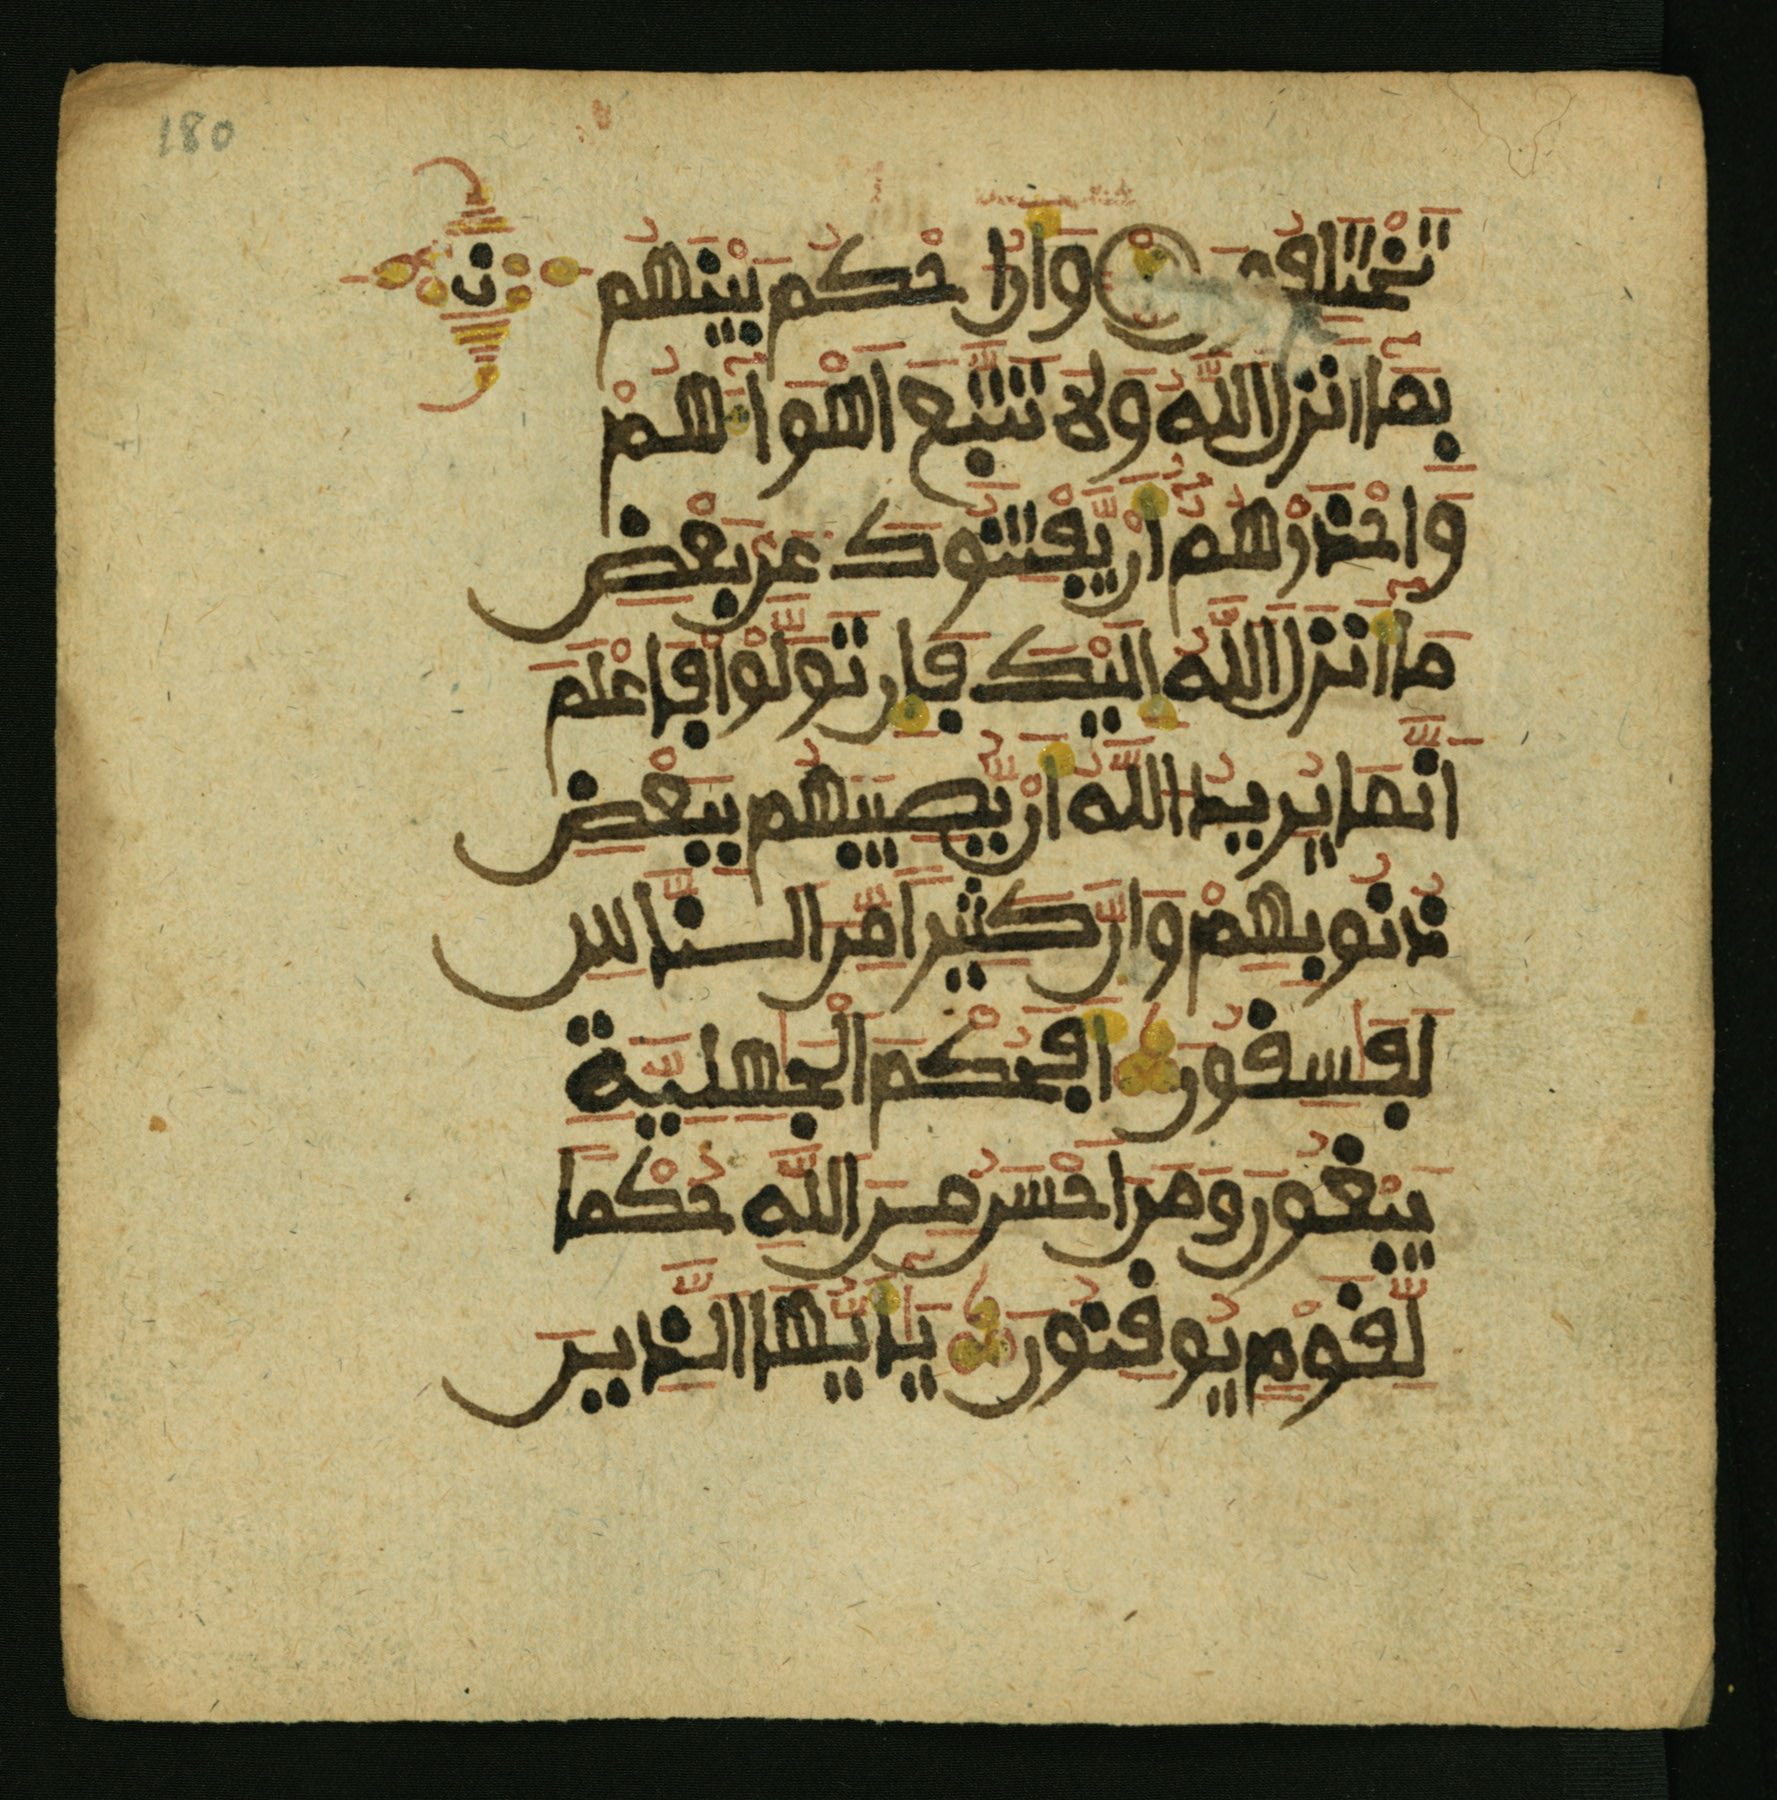 180
تَخْتَلِفُونَ وَأَنُ احْكُم بَيْنَهُم ن
بِمَا أَنزَلَ اللَّهُ وَلَا تَتَّبِعَ أَهْوَآءَهُمْ
وَاحْذَرْهُمُ أَنْ يَّفْتِنُوكَ عَن بَعْضِ
مَا أَنزَلَ اللَّهُ إِلَيْكَ فَإِن تَوَلَّوْا فَاعْلَمَ
أَنَّمَا يُرِيدُ اللَّهُ أَنْ يُّصِيبَهُم بِبَعْضِ
ذُنُوبِهِمْ وَإِنَّ كَثِيرًا مِّنَ النَّاسِ
لَفَٰسِقُونَ أَفَحُكْمَ الْجَٰهِلِيَّةِ
يَبْغُونَ وَمَنَ أَحْسَنُ مِنَ اللَّهِ حُكْمًا
لِّقَوْمٍ يُوقِنُونَ يَٰأَيُّهَا الَّذِينَ